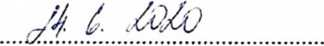 14. 6. 2020